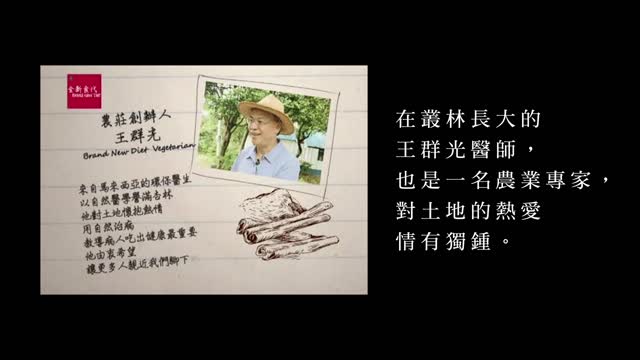 全新食代
BRAND NEW DIET
農莊創辦人
王群光
Brand New Diet Vegetarian
來自馬來西亞的環保醫生
以自然醫學譽滿杏林
他對土地懷抱熱情
用自然治病
教導病人吃出健康最重要
他由衷希望
讓更多人親近我們腳下
在叢林長大的
王群光醫師，
也是一名農業專家，
對土地的熱愛
情有獨鍾。